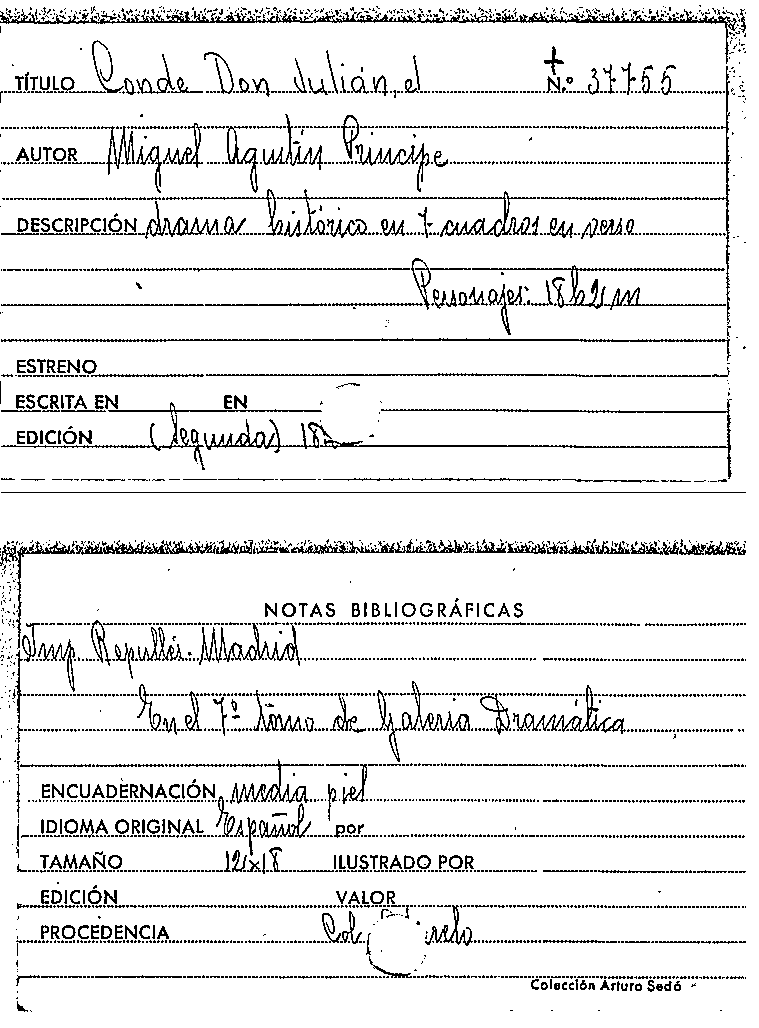 TÍTULO Conde Don Julián, el N.º 37755
AUTOR Miguel Agustín Principe
DESCRIPCIÓN drama histórico en 7 cuadros en verso
Personajes: 18 h 2 m
ESTRENO
ESCRITA EN EN
EDICIÓN (Segunda)
NOTAS BIBLIOGRÁFICAS
Imp. Repullés. Madrid
En el 7º tomo de Galeria Dramática
ENCUADERNACIÓN media piel
IDIOMA ORIGINAL Español por
TAMAÑO 12x18 ILUSTRADO POR
EDICIÓN VALOR
PROCEDENCIA
Colección Arturo Sedó